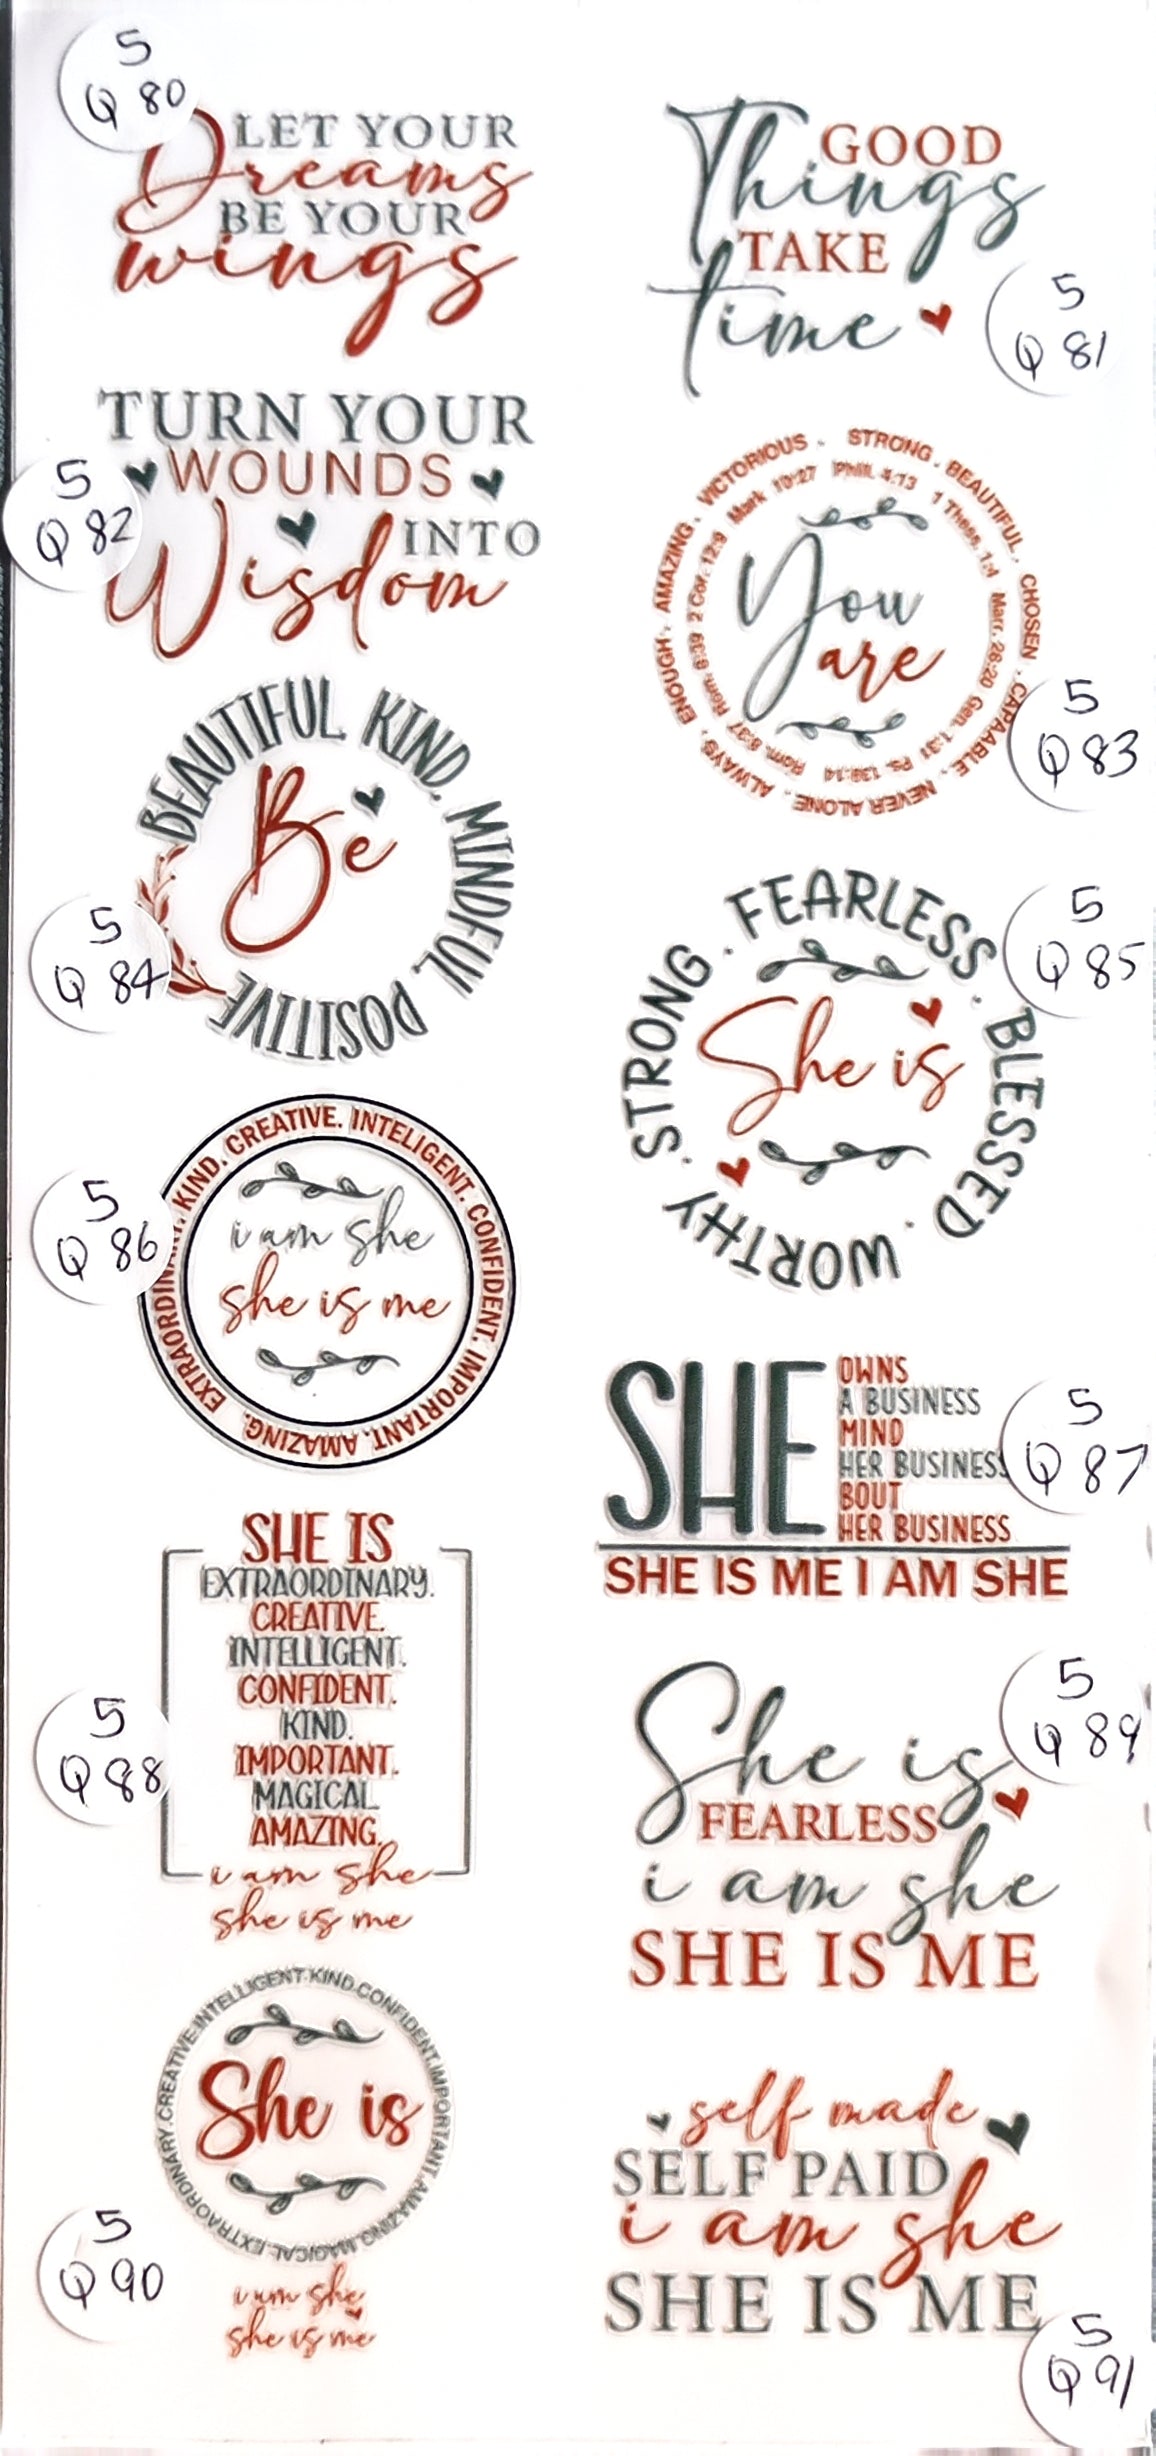 5
Q 80
LET YOUR
Dreams
BE YOUR
wings
GOOD
Things
TAKE
time
5
Q 81
TURN YOUR
WOUNDS
INTO
Wisdom
5
Q 82
STRONG . BEAUTIFUL . CHOSEN . CAPAABLE . NEVER ALONE . ALWAYS . ENOUGH . AMAZING . VICTORIOUS .
Phill. 4:13 1 Thess. 1:4 Marr. 28:20 Gen. 1:31 Ps. 139:14 Rom. 8:37 Rom. 8:39 2 Cor. 12:9 Mark 10:27
You
are
5
Q 83
BEAUTIFUL KIND. MINDFUL POSITIVE
Be
5
Q 84
STRONG . FEARLESS . BLESSED . WORTHY .
She is
5
Q 85
EXTRAORDINARY. KIND. CREATIVE. INTELIGENT. CONFIDENT. IMPORTANT. AMAZING.
i am she
she is me
5
Q 86
SHE
OWNS
A BUSINESS
MIND
HER BUSINESS
BOUT
HER BUSINESS
SHE IS ME I AM SHE
5
Q 87
SHE IS
EXTRAORDINARY.
CREATIVE.
INTELLIGENT.
CONFIDENT.
KIND.
IMPORTANT.
MAGICAL
AMAZING.
i am she
she is me
5
Q 88
She is
FEARLESS
i am she
SHE IS ME
5
Q 89
EXTRAORDINARY.CREATIVE.INTELLIGENT.KIND.CONFIDENT.IMPORTANT.AMAZING.MAGICAL.
She is
i am she
she is me
5
Q 90
self made
SELF PAID
i am she
SHE IS ME
5
Q 91